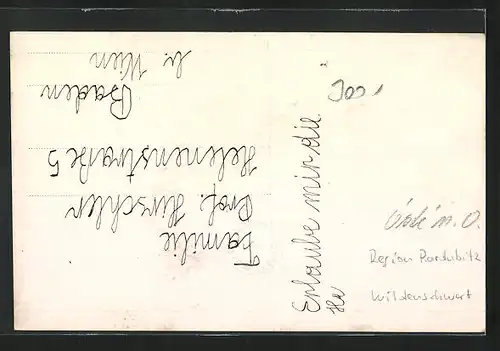 Familie
Prof. Hirschler
Helenenstraße 5
Baden
b. Wien
Erlaube mir die
He
300,
Ústí n. O.
Region Pardubitz
Wildenschwert